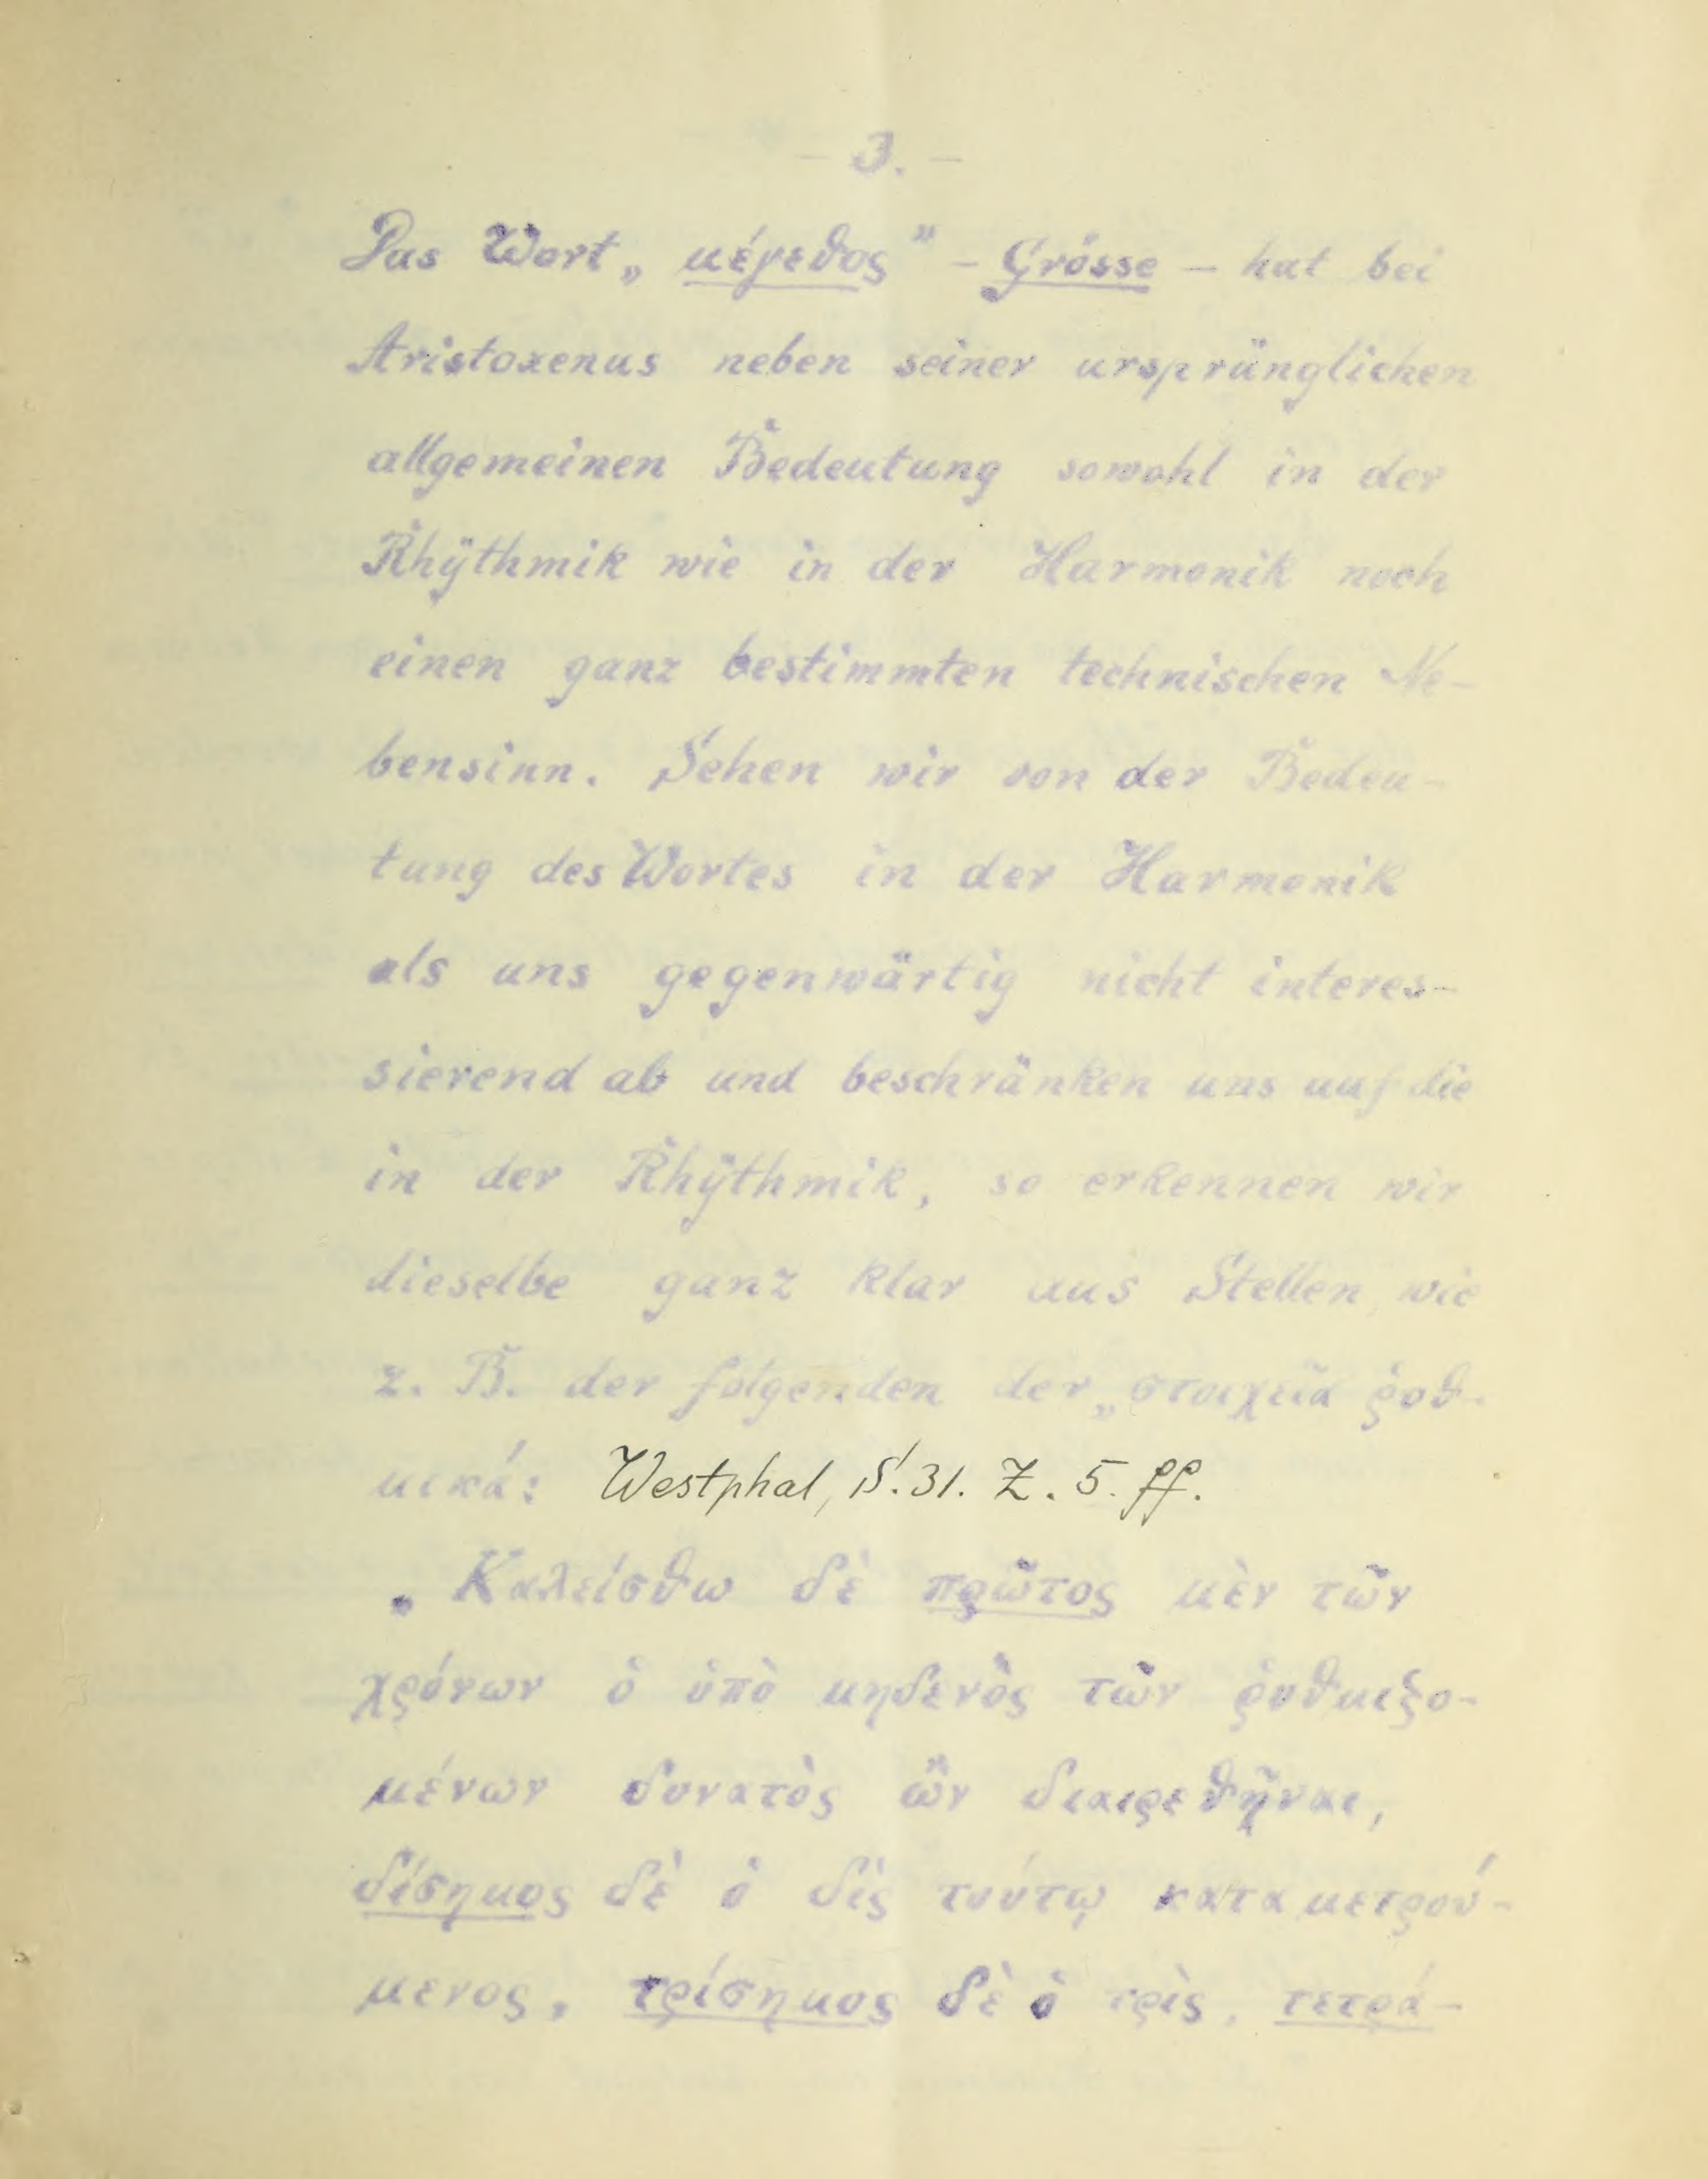 - 3. -
Das Wort „μέγεθος" - Grösse - hat bei
Aristoxenus neben seiner ursprünglichen
allgemeinen Bedeutung sowohl in der
Rhÿthmik wie in der Harmonik noch
einen ganz bestimmten technischen Ne-
bensinn. Sehen wir von der Bedeu-
tung des Wortes in der Harmonik
als uns gegenwärtig nicht interes-
sierend ab und beschränken uns auf die
in der Rhÿthmik, so erkennen wir
dieselbe ganz klar aus Stellen, wie
z. B. der folgenden der „στοιχεῖα ῥυθ-
μικά: Westphal, S. 31. Z. 5. ff.
„Καλείσθω δὲ πρῶτος μὲν τῶν
χρόνων ὁ ὑπὸ μηδενὸς τῶν ῥυθμιζο-
μένων δυνατὸς ὢν διαιρεθῆναι,
δίσημος δὲ ὁ δὶς τούτῳ καταμετρού-
μενος, τρίσημος δὲ ὁ τρὶς, τετρά-